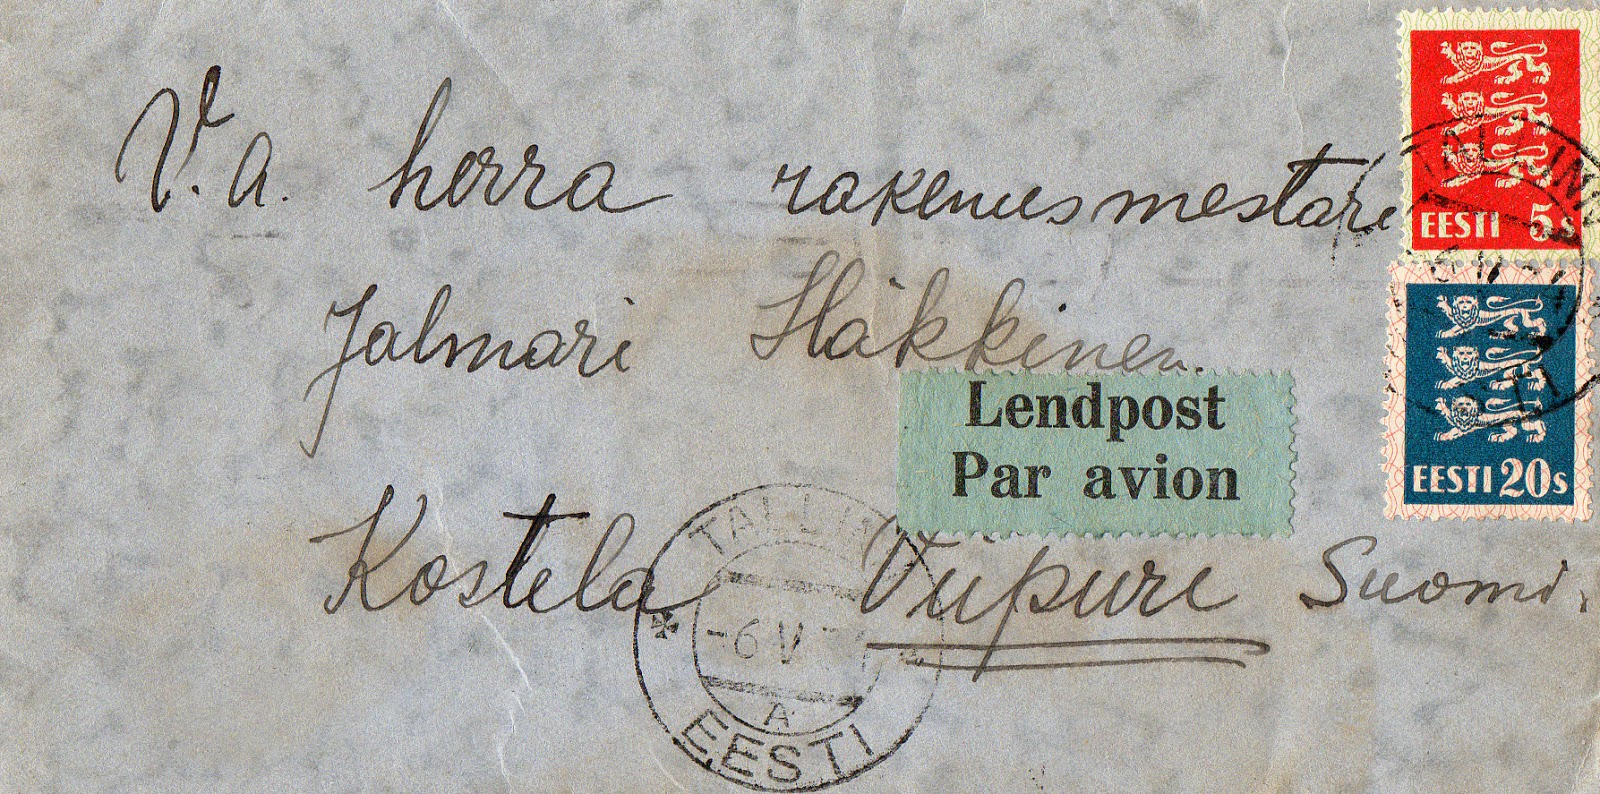 V. a. herra rakenusmestari
Jalmari Häkkinen.
Kostela Viipuri Suomi.
Lendpost
Par avion
EESTI 5s
EESTI 20s
TALLINN
-6.V
A
EESTI
TALLINN